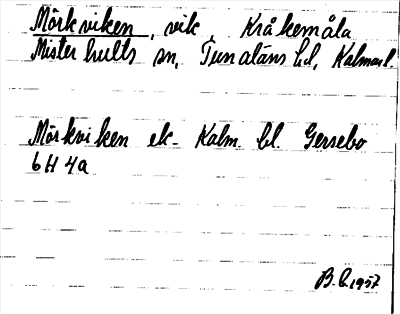 Mörkviken, vik, Kråkemåla
Misterhults sn, Tunaläns hd, Kalmar l.
Mörkviken ek. Kalm. bl. Gersebo
6H 4a
1957